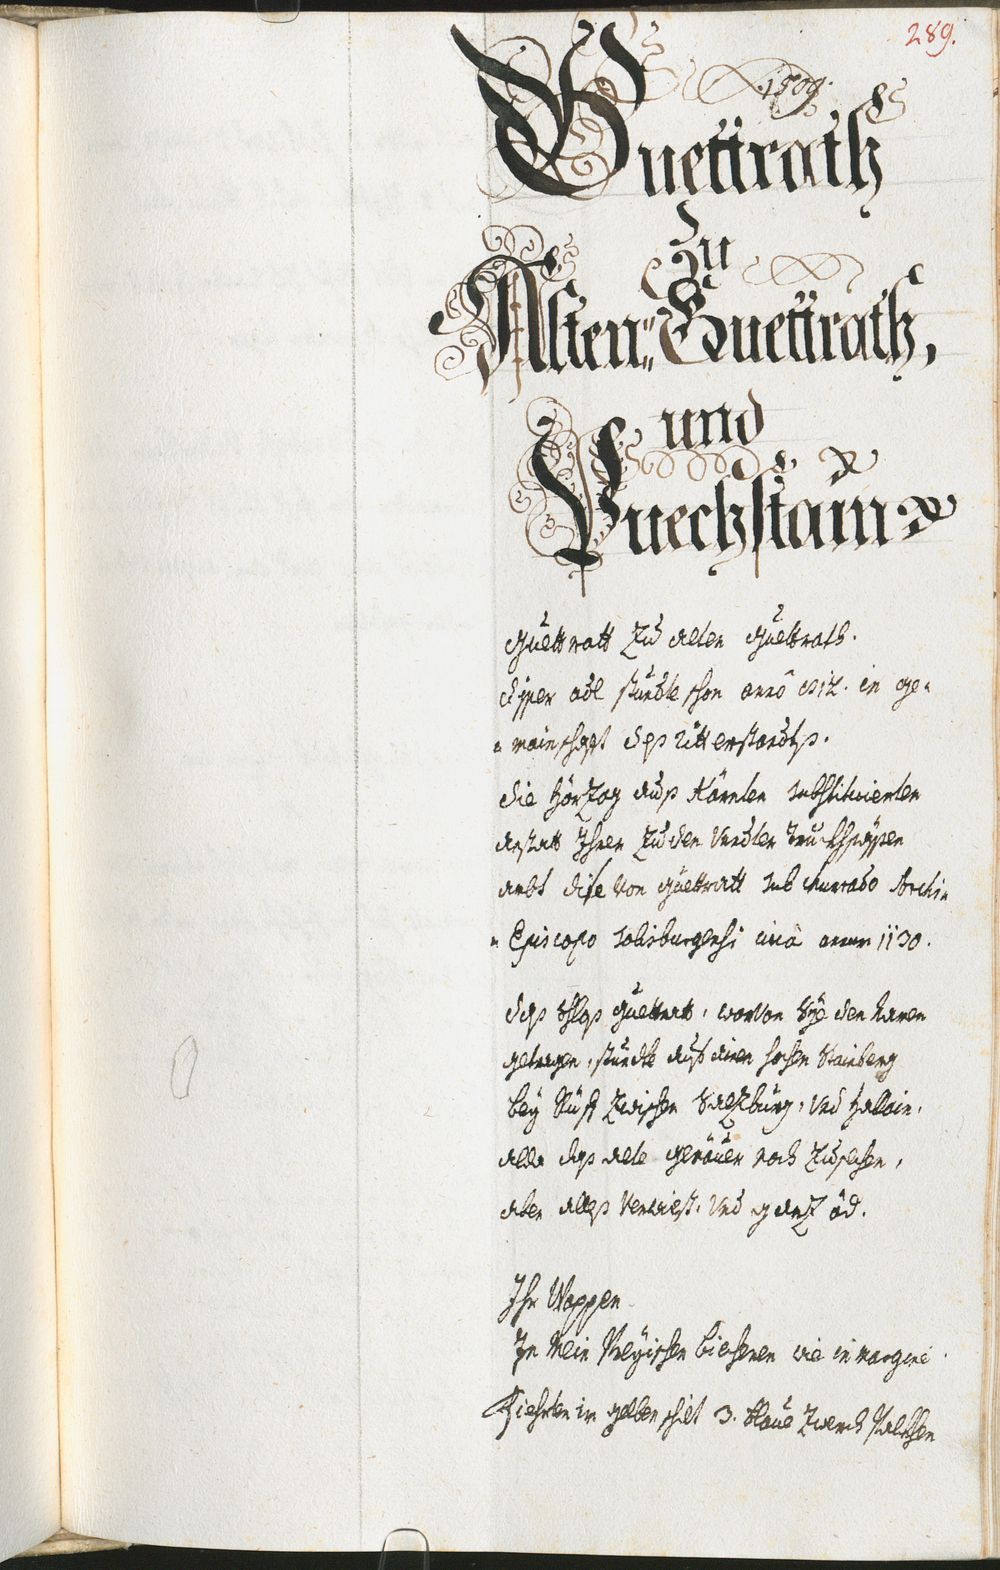 289.
1509.
Guettrath
Zu
Alten Guettrath,
und
Pueckstain
Guettratt Zu alten Guettrath.
diser adl stundte schon anno in ge-
mainschafft des Ritterstandts.
Die Hörzog aus Kärnten substituierten
anstatt Ihren Zu den Truchsässen
ambt dise von Guettratt sub Chunrado Archi-
Episcopo Salisburgensi circa annum 1130.
das Schlos Guettratt, worvon Sye den Namen
getragen, stundte auf ainen hochen Stainberg
bey Zwischen Saltzburg, und Hallein,
alda das alte gemäuer noch Zu sechen,
aber alles und gantz öd.
Ihr Wappen
In mein biechern wie in margine
Fiehrten in gelben schilt 3. blaue Zwerch Palckhen